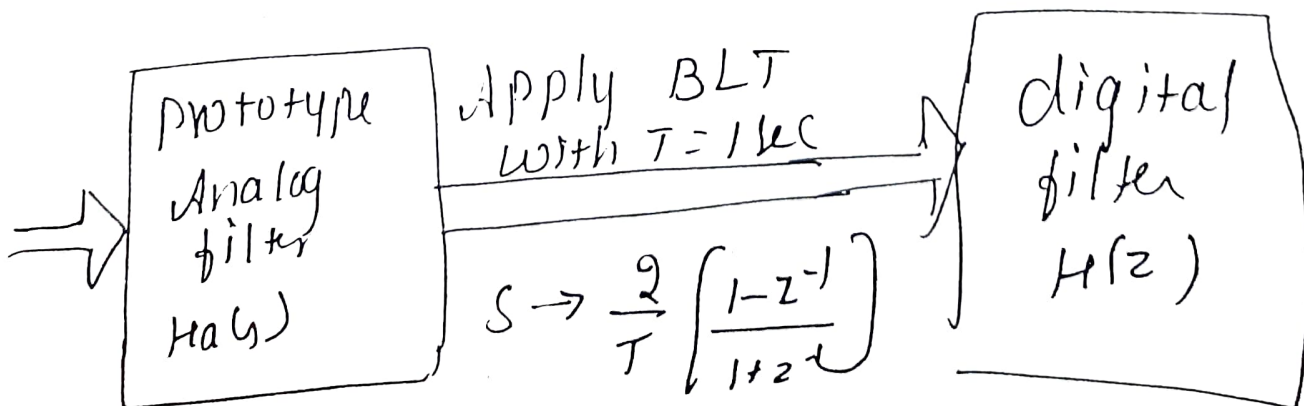 prototype
Analog
filter
Ha(s)
Apply BLT
with T = 1 sec
S → 2/T [ (1 - z^-1) / (1 + z^-1) ]
digital
filter
H(z)